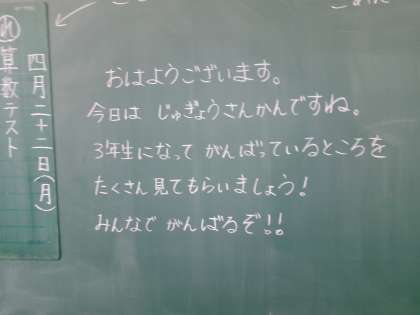 おはようございます。
今日は じゅぎょうさんかんですね。
3年生になって がんばっているところを
たくさん見てもらいましょう!
みんなで がんばるぞ!!
四月二十二日(月)
算数テスト